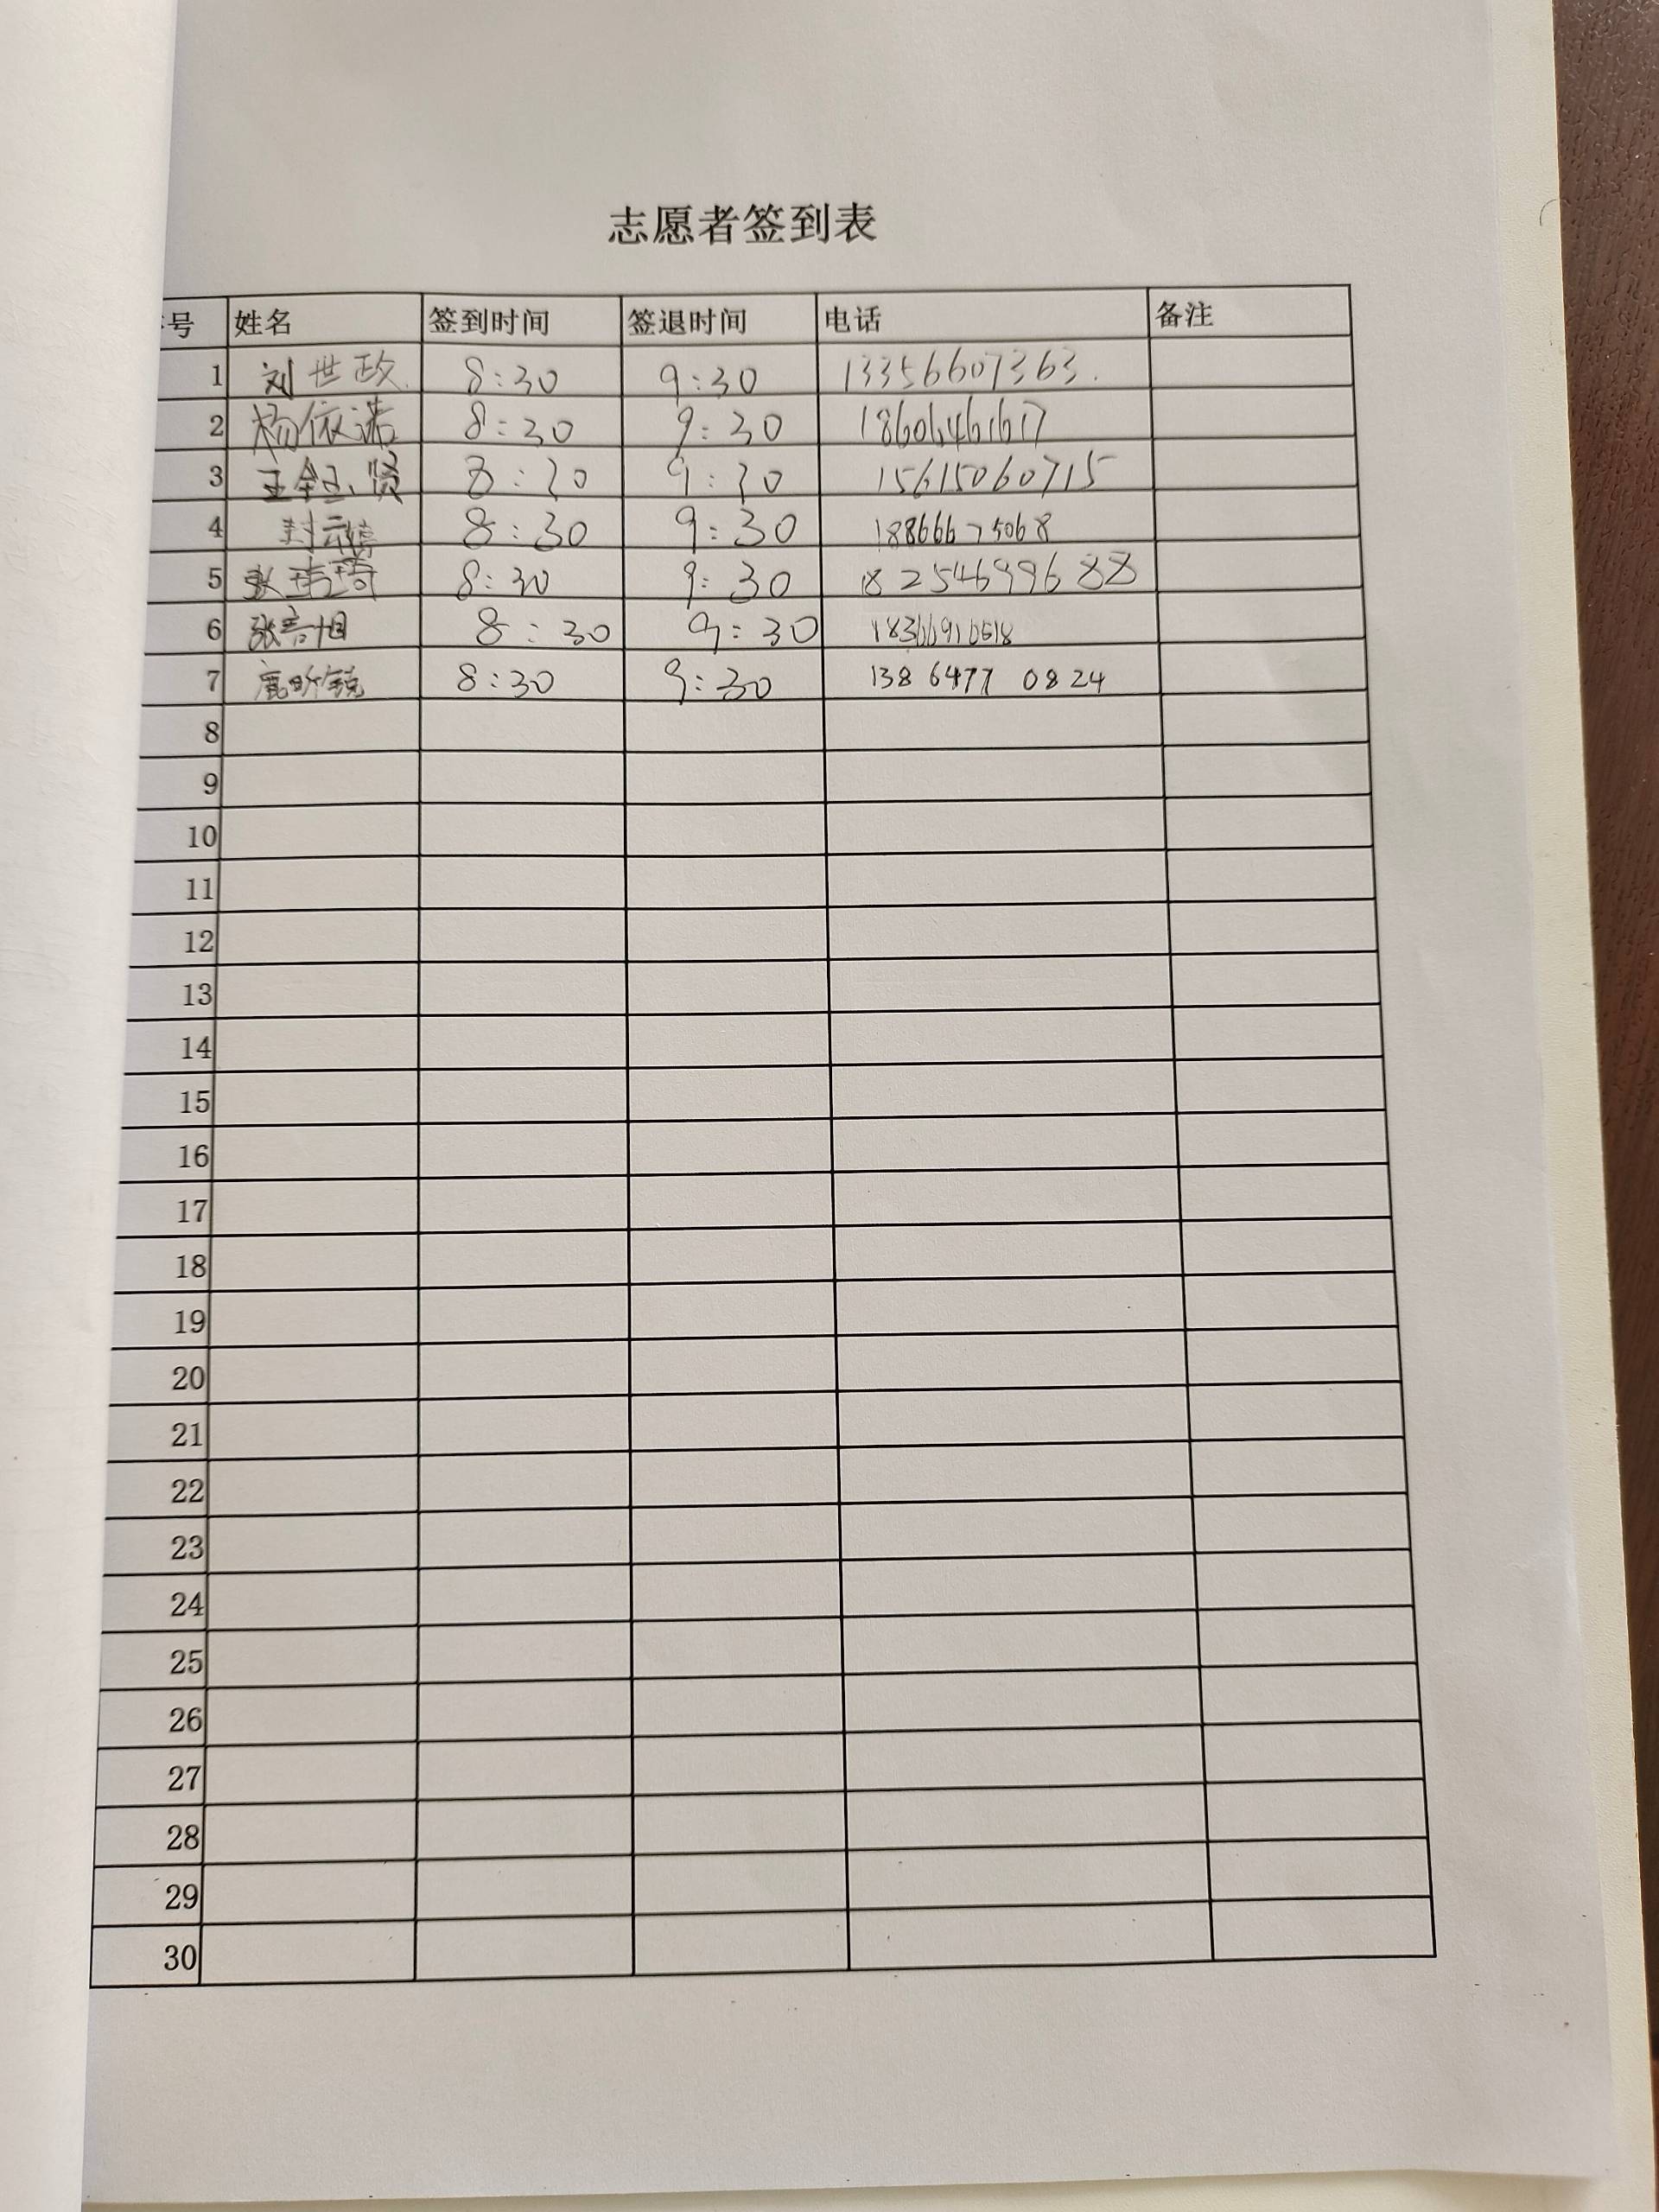 志愿者签到表
号 姓名 签到时间 签退时间 电话 备注
1 刘世政 8:30 9:30 13356607363.
2 杨依诺 8:30 9:30 18606461617
3 王钰贤 8:30 9:30 15615060715
4 封云 8:30 9:30 18866675068
5 张琦 8:30 9:30 18254699688
6 张 旭 8:30 9:30
7 鹿昕锐 8:30 9:30 138 6477 0824
8
9
10
11
12
13
14
15
16
17
18
19
20
21
22
23
24
25
26
27
28
29
30